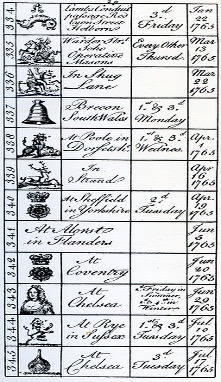 334.
Lambs Conduit
Passage, Red
Holborn
3.d
Friday
Jan
22
1765
335
Operative
Masons
Every Other
Thursd.
Mar
13
1765
336
In Shug
Lane
Mar
22
1765
337
Brecon
South Wales
1.st & 3.d
Monday
338
At Poole in
Dorsetsh.
1.st & 3.d
Wednes.
Apr
1
1765
339
In
Strand
Apr
16
1765
340
At Sheffield
in Yorkshire
2.d
Tuesday
Apr
19
1765
341
At Alost
in Flanders
Jun
5
1765
342
At
Coventry
Jun
20
1765
343
At
Chelsea
Friday in
Summer,
Winter
Jun
29
1765
344
At Rye
in Sussex
1.st & 3.d
Tuesday
Jul
12
1765
345
At
Chelsea
3.d
Tuesday
Jul
17
1765